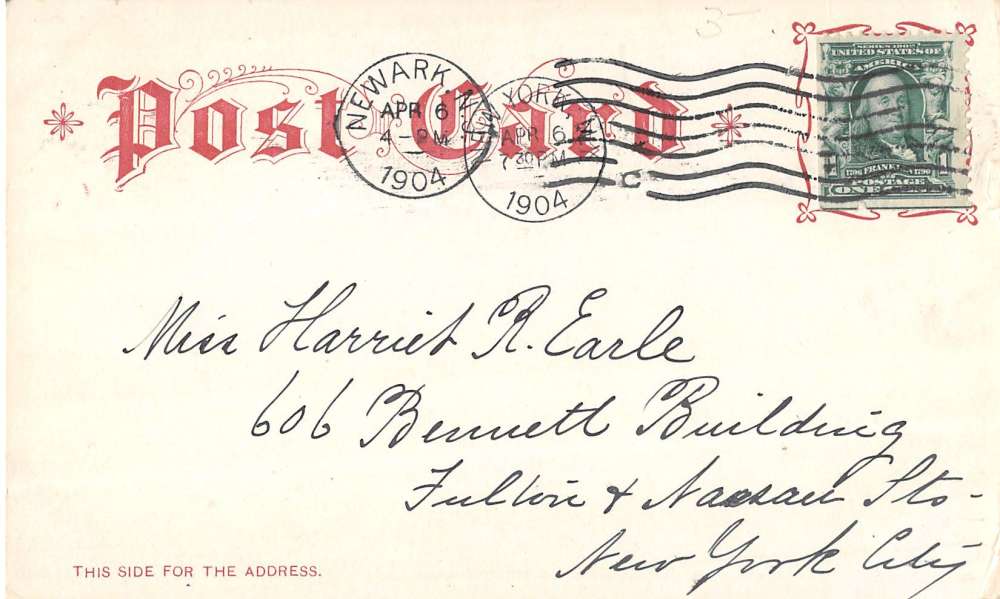 3-
Post Card
NEWARK, N.J.
APR 6
4 PM
1904
NEW YORK, N.
APR 6
7 30 PM
1904
C
SERIES 1902
UNITED STATES OF
AMERICA
1706 FRANKLIN 1790
POSTAGE
ONE CENT
Miss Harriet R. Earle
606 Bennett Building
Fulton & Nassau Sts-
New York City
THIS SIDE FOR THE ADDRESS.